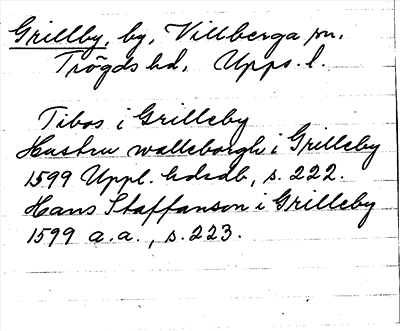 Grillby, by, Villberga sn.
Trögds hd. Upps. l.
Tibos i Grilleby
Hustru walleborgh i Grilleby
1599 Uppl. hdsdb, s. 222.
Hans Staffanson i Grilleby
1599 a.a., s. 223.